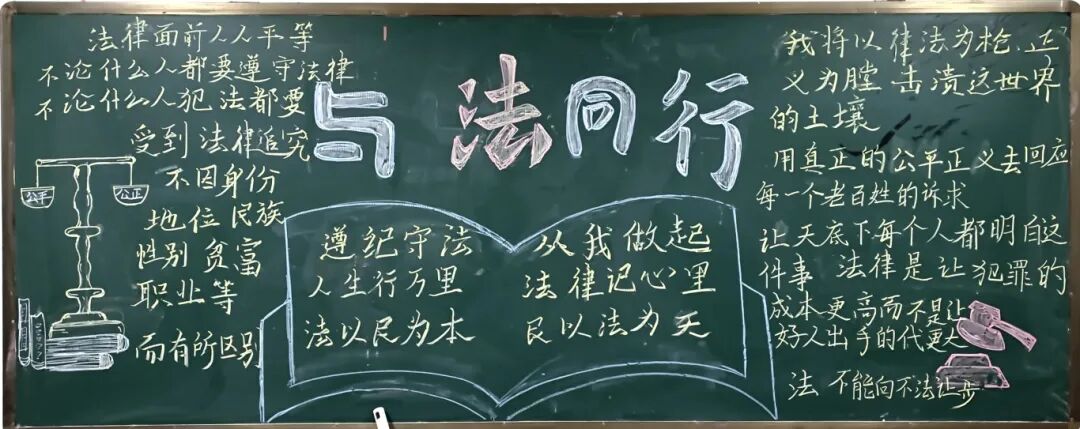 法律面前人人平等
不论什么人都要遵守法律
不论什么人犯法都要
受到法律追究
不因身份
地位民族
性别贫富
职业等
而有所区别
公平
公正
与法同行
遵纪守法
人生行万里
法以民为本
从我做起
法律记心里
民以法为天
我将以律法为枪 正
义为膛 击溃这世界
的土壤
用真正的公平正义去回应
每一个老百姓的诉求
让天底下每个人都明白这
件事 法律是让犯罪的
成本更高而不是让
好人出手的代更大
法 不能向不法让步